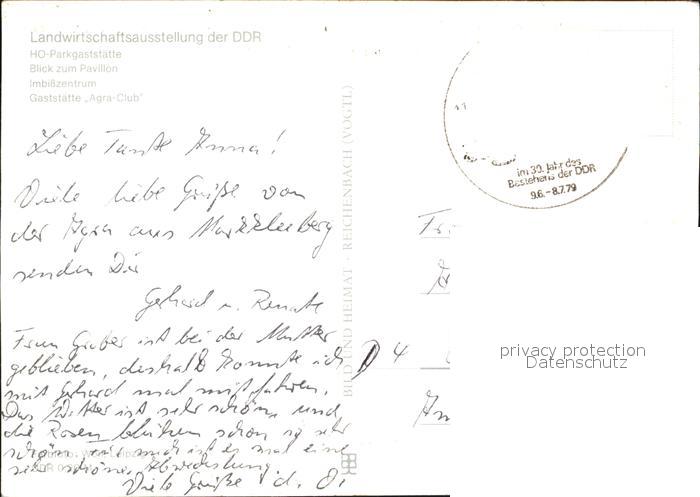 Landwirtschaftsausstellung der DDR
HO-Parkgaststätte
Blick zum Pavillon
Imbißzentrum
Gaststätte „Agra-Club"
Liebe Tante Anna!
Viele liebe Grüße von
der Agra aus Markkleeberg
senden Dir
Gerhard u. Renate
Frau Gruber ist bei der Mutter
geblieben, deshalb konnte ich
mit Gerhard mal mitfahren.
Das Wetter ist sehr schön und
die Rosen blühen schon so sehr
schön, für mich ist es mal eine
sehr schöne Abwechslung.
Viele Grüße
BILD UND HEIMAT · REICHENBACH (VOGTL)
im 30. Jahr des
Bestehens der DDR
9.6.-8.7.79
4
privacy protection
Datenschutz